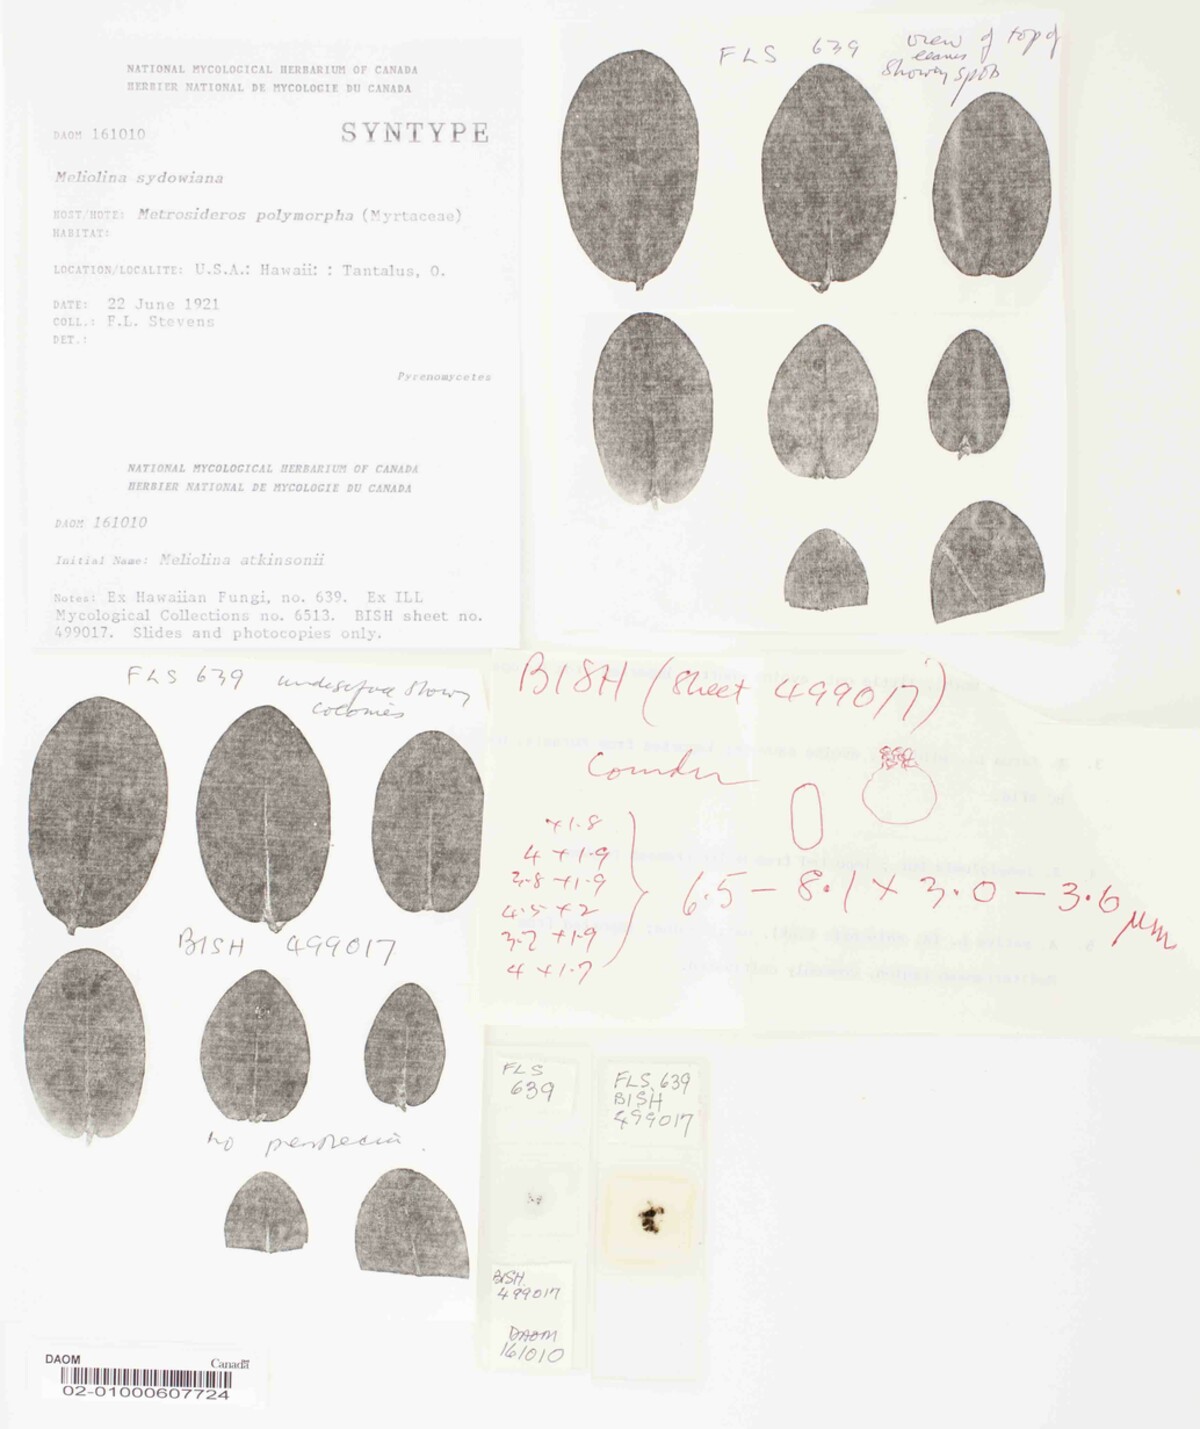 NATIONAL MYCOLOGICAL HERBARIUM OF CANADA
HERBIER NATIONAL DE MYCOLOGIE DU CANADA
DAOM 161010
SYNTYPE
Meliolina sydowiana
HOST/HOTE: Metrosideros polymorpha (Myrtaceae)
HABITAT:
LOCATION/LOCALITE: U.S.A.: Hawaii: : Tantalus, O.
DATE: 22 June 1921
COLL.: F.L. Stevens
DET.:
Pyrenomycetes
NATIONAL MYCOLOGICAL HERBARIUM OF CANADA
HERBIER NATIONAL DE MYCOLOGIE DU CANADA
DAOM 161010
Initial Name: Meliolina atkinsonii
Notes: Ex Hawaiian Fungi, no. 639. Ex ILL
Mycological Collections no. 6513. BISH sheet no.
499017. Slides and photocopies only.
FLS 639
view of top of
leaves
showing spots
FLS 639
undersurface showing
colonies
BISH 499017
no perithecia.
BISH (sheet 499017)
Conidia
×1.8
4 ×1.9
3.8 ×1.9
4.5 ×2
3.7 ×1.9
4 ×1.7
6.5 – 8.1 × 3.0 – 3.6 µm
FLS
639
BISH
499017
DAOM
161010
FLS 639
BISH
499017
DAOM
Canada
02-01000607724